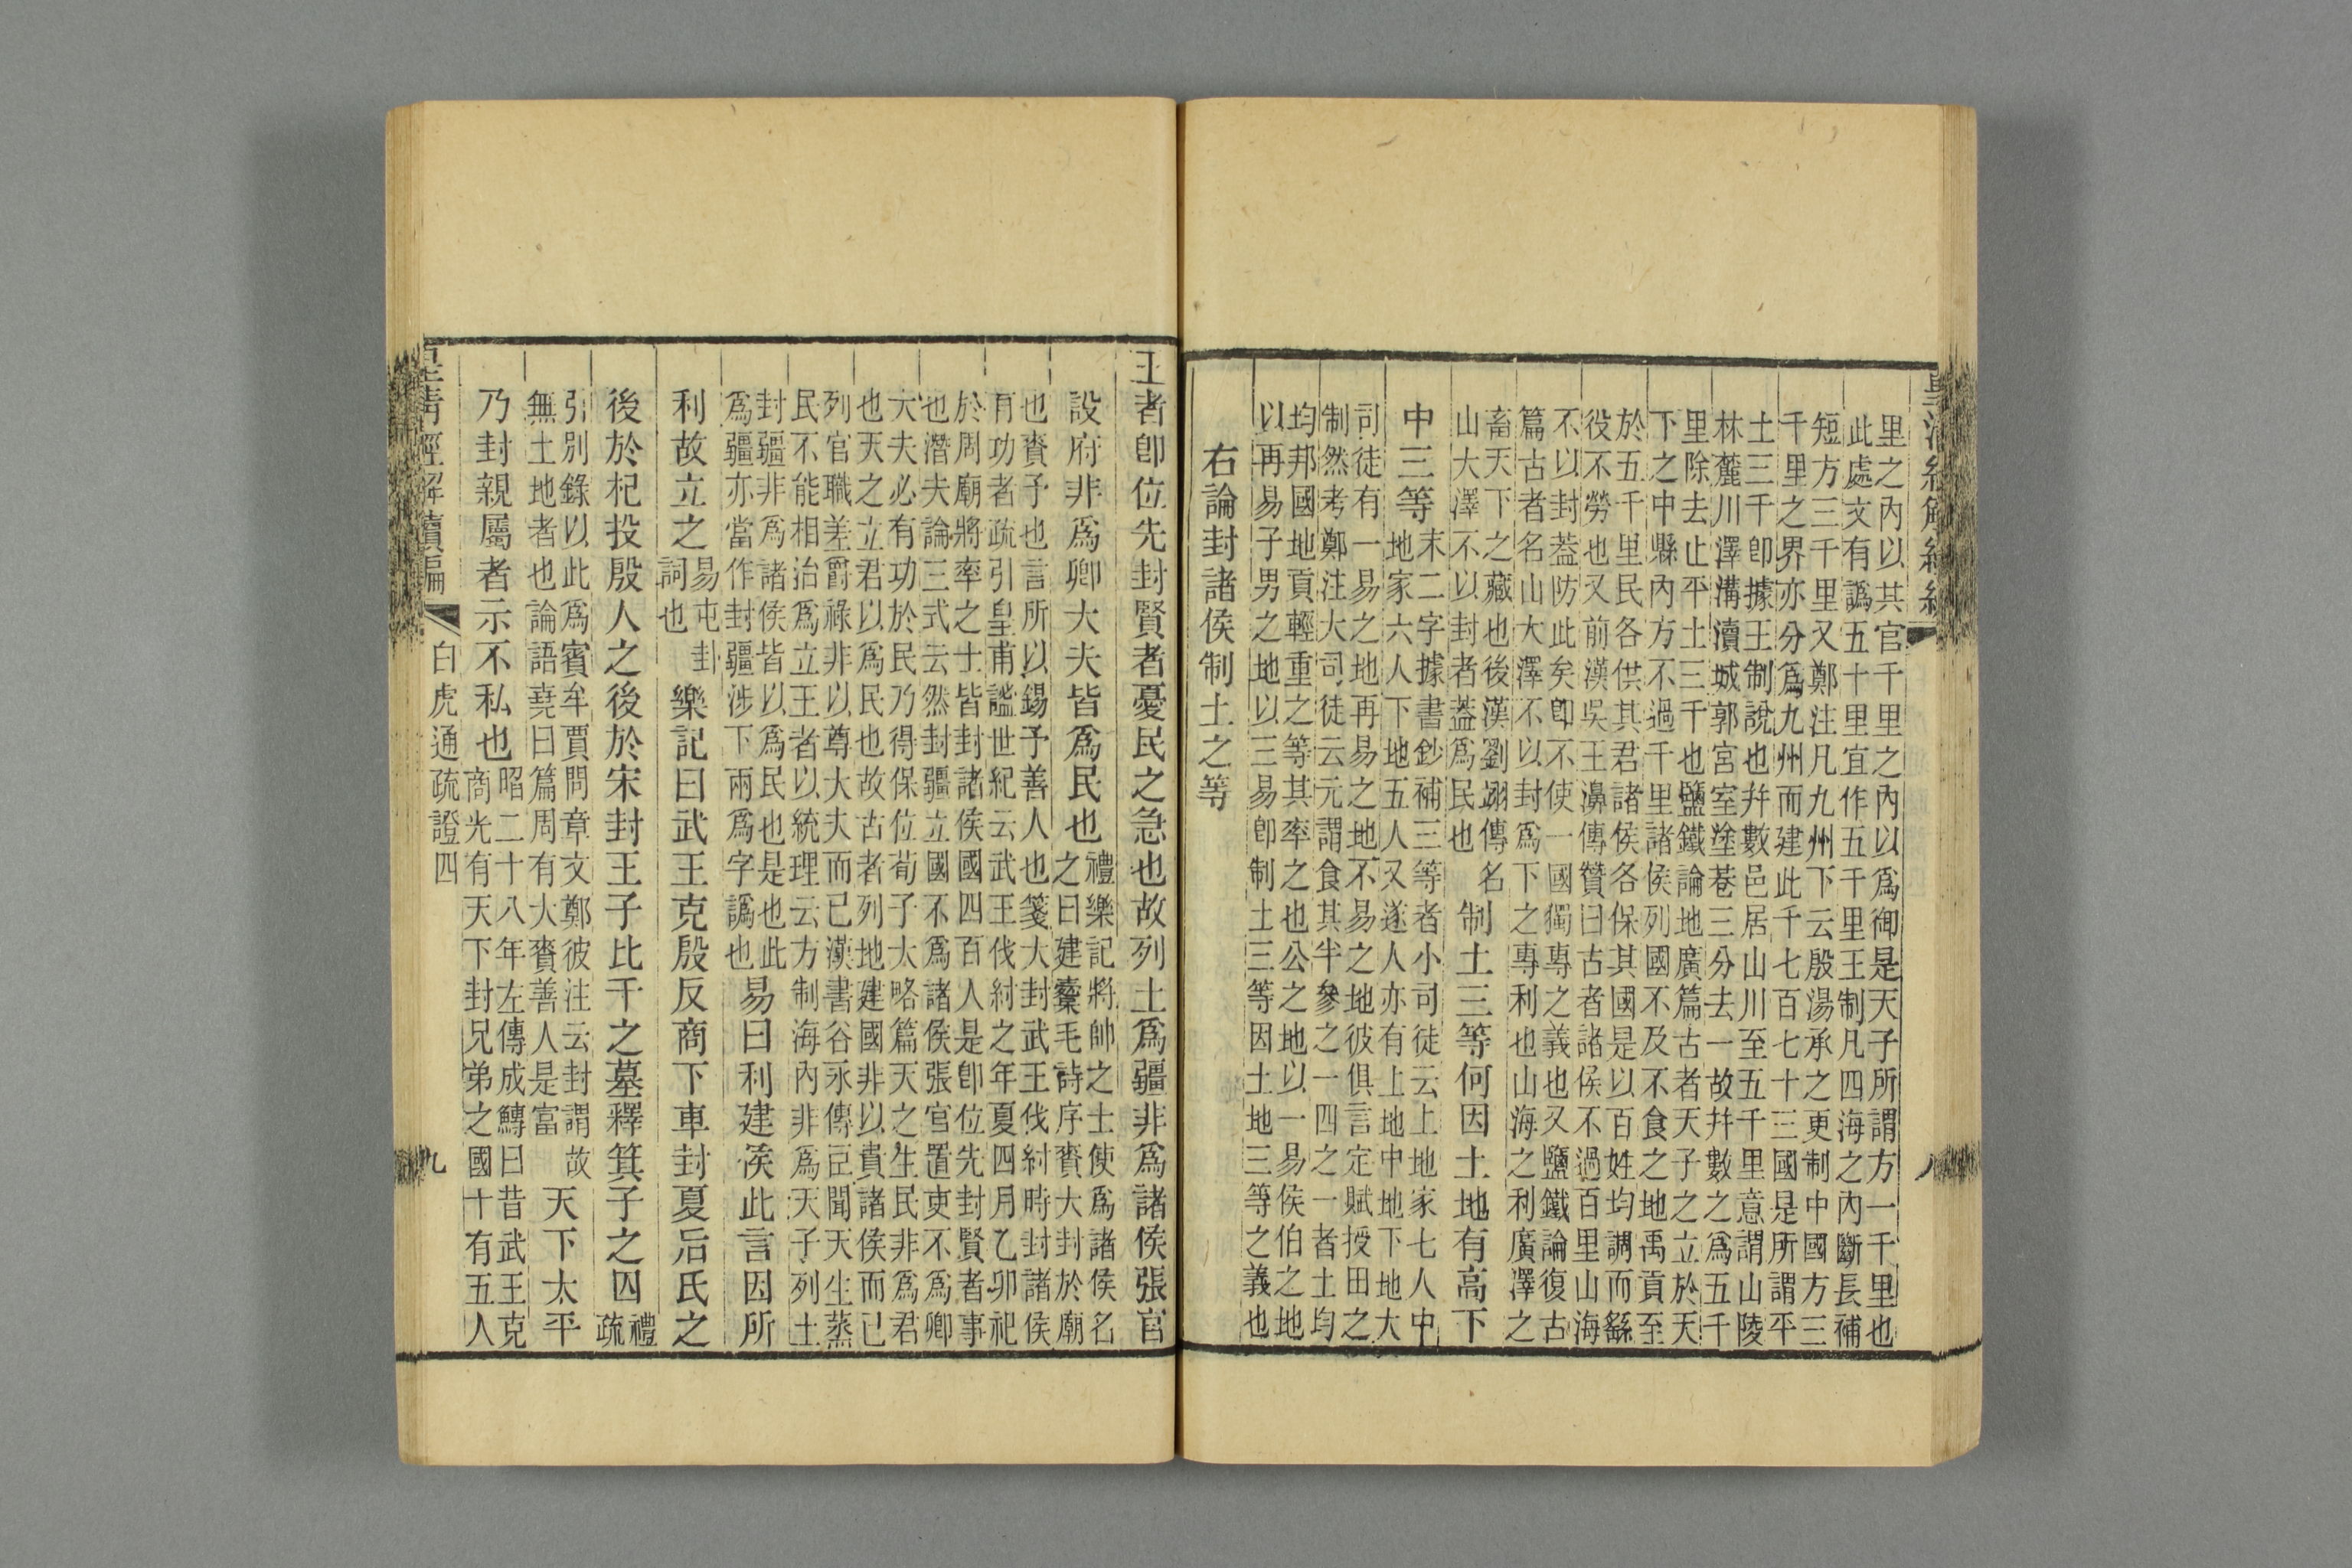 皇清經解續編
八
里之內以其官千里之內以爲御是天子所謂方一千里也
此處文有譌五十里宜作五千里王制凡四海之內斷長補
短方三千里又鄭注凡九州下云殷湯承之更制中國方三
千里之界亦分爲九州而建此千七百七十三國是所謂平
土三千卽據王制說也幷數邑居山川至五千里意謂山陵
林麓川澤溝瀆城郭宮室塗巷三分去一故幷數之爲五千
里除去止平土三千也鹽鐵論地廣篇古者天子之立於天
下之中縣內方不過千里諸侯列國不及不食之地禹貢至
於五千里民各供其君諸侯各保其國是以百姓均調而繇
役不勞也又前漢吳王濞傳贊曰古者諸侯不過百里山海
不以封葢防此矣卽不使一國獨專之義也又鹽鐵論復古
篇古者名山大澤不以封爲下之專利也山海之利廣澤之
畜天下之藏也後漢劉翊傳名
山大澤不以封者葢爲民也
制土三等何因土地有高下
中三等
末二字據書鈔補三等者小司徒云上地家七人中
地家六人下地五人又遂人亦有上地中地下地大
司徒有一易之地再易之地不易之地彼俱言定賦授田之
制然考鄭注大司徒云元謂食其半參之一四之一者土均
均邦國地貢輕重之等其率之也公之地以一易侯伯之地
以再易子男之地以三易卽制土三等因土地三等之義也
右論封諸侯制土之等
王者卽位先封賢者憂民之急也故列土爲疆非爲諸侯張官
設府非爲卿大夫皆爲民也
禮樂記將帥之士使爲諸侯名
之曰建櫜毛詩序賚大封於廟
也賚予也言所以錫予善人也箋大封武王伐紂時封諸侯
有功者疏引皇甫謐世紀云武王伐紂之年夏四月乙卯祀
於周廟將率之士皆封諸侯國四百人是卽位先封賢者事
也潛夫論三式云然封疆立國不爲諸侯張官置吏不爲卿
大夫必有功於民乃得保位荀子大略篇天之生民非爲君
也天之立君以爲民也故古者列地建國非以貴諸侯而已
列官職差爵祿非以尊大夫而已漢書谷永傳臣聞天生蒸
民不能相治爲立王者以統理云方制海內非爲天子列土
封疆非爲諸侯皆以爲民也是也此
爲疆亦當作封疆涉下兩爲字譌也
易曰利建侯此言因所
利故立之
易屯卦
詞也
樂記曰武王克殷反商下車封夏后氏之
後於杞投殷人之後於宋封王子比干之墓釋箕子之囚
禮
疏
引別錄以此爲賓牟賈問章文鄭彼注云封謂故
無土地者也論語堯曰篇周有大賚善人是富
天下太平
乃封親屬者示不私也
昭二十八年左傳成鱄曰昔武王克
商光有天下封兄弟之國十有五人
皇清經解續編
白虎通疏證四
九